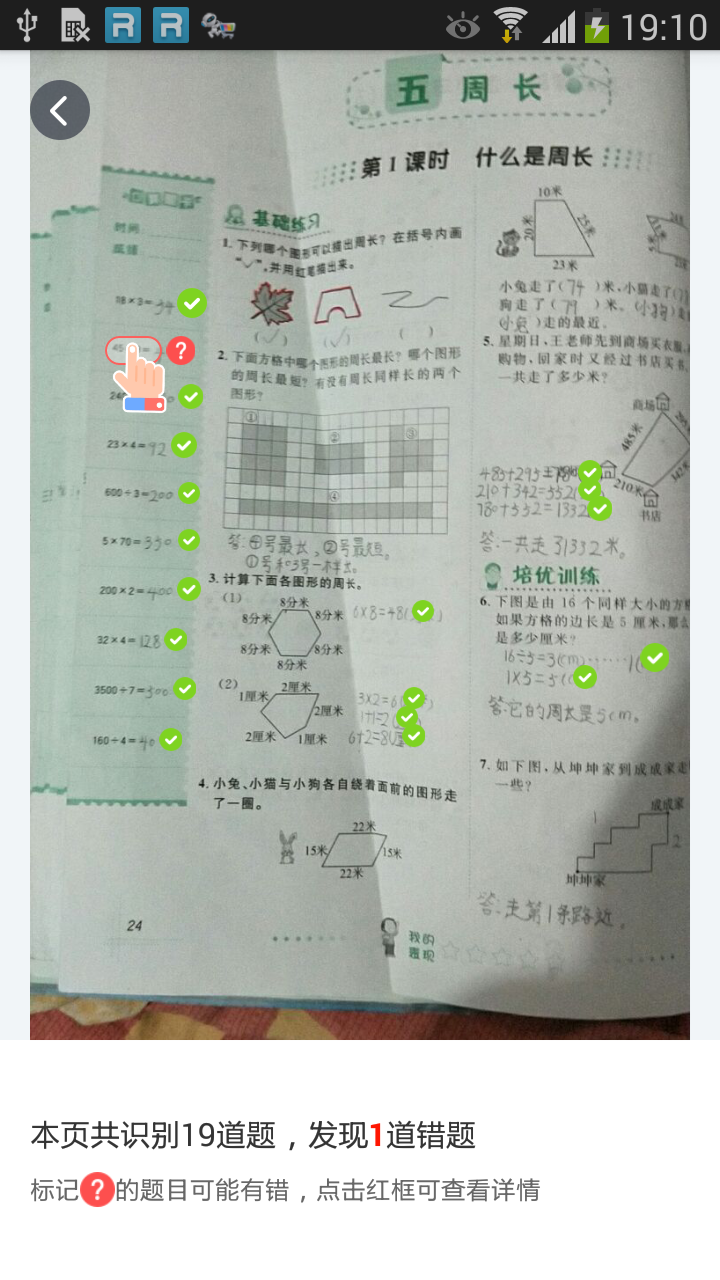 19:10
五 周 长
第1课时 什么是周长
时间
18×3=54
23×4=92
600÷3=200
5×70=350
200×2=400
32×4=128
3500÷7=500
160÷4=40
基础练习
1. 下列哪个图形可以描出周长？在括号内画
“✓”,并用红笔描出来。
(✓) (✓) ( )
2. 下面方格中哪个图形的周长最长？哪个图形
的周长最短？有没有周长同样长的两个
图形？
① ② ③
④
答:④号最长,②号最短。
①号和3号一样长。
3. 计算下面各图形的周长。
(1)
8分米
8分米 8分米
8分米 8分米
8分米
6×8=48(
(2)
2厘米
1厘米
2厘米
2厘米 1厘米
3×2=6(
1+1=2(
6+2=8(厘
4. 小兔、小猫与小狗各自绕着面前的图形走
了一圈。
22米
15米 15米
22米
24
我的
表现
10米
20米 25米
23米
小兔走了(74 )米,小猫走了(7
狗走了(79 )米。(小狗)走
(小兔)走的最近。
5. 星期日,王老师先到商场买衣服,
购物,回家时又经过书店买书
一共走了多少米？
商场
485米
210米 342米
书店
485+295=78
210+342=552(
780+552=1332
答:一共走了1332米。
培优训练
6. 下图是由 16 个同样大小的方格
如果方格的边长是 5 厘米,那么
是多少厘米？
16÷5=3(cm)······1(
1×5=5(
答:它的周长是5cm。
7. 如下图,从坤坤家到成成家走
一些？
成成家
1
2
坤坤家
答:走第1条路近。
本页共识别19道题，发现1道错题
标记?的题目可能有错，点击红框可查看详情